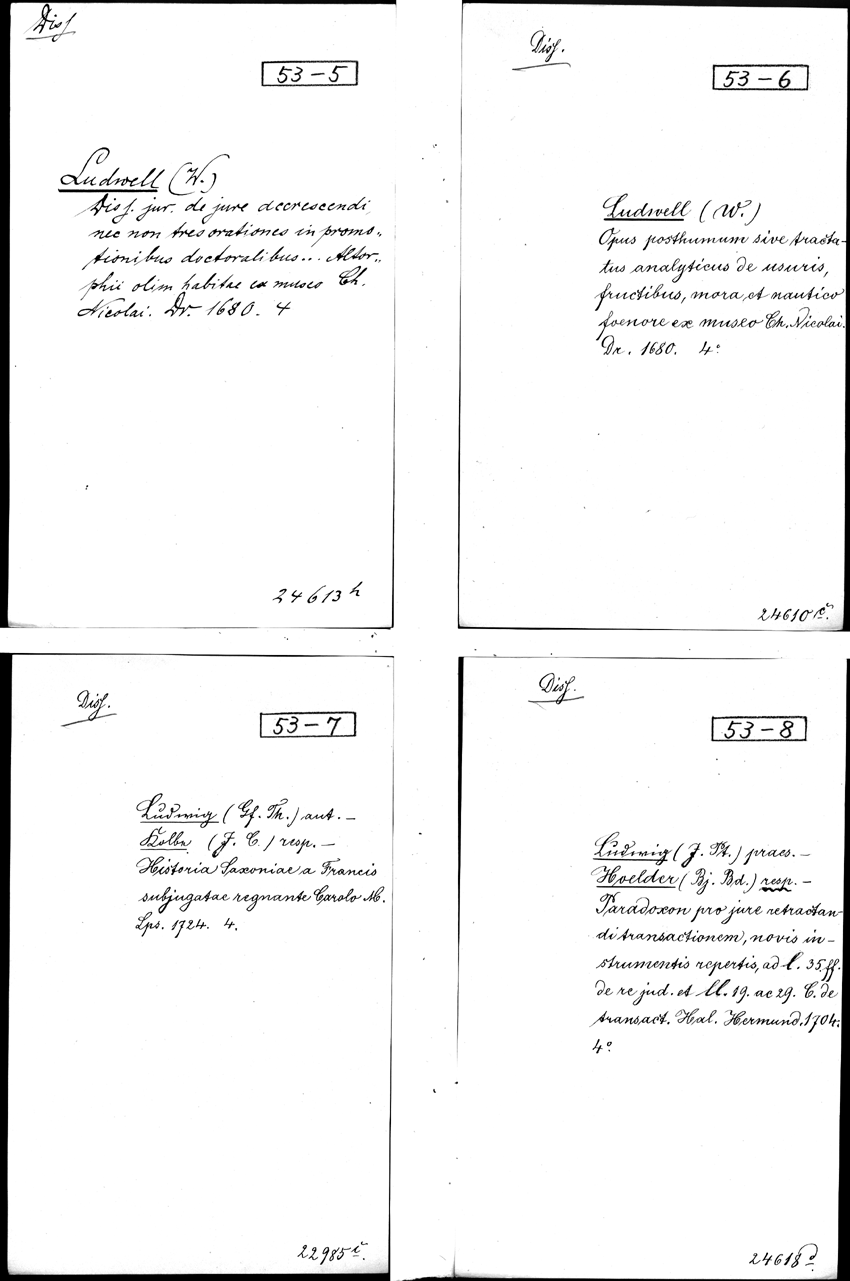 Diss.
53-5
Ludwell (W.)
Diss. jur. de jure accrescendi
nec non tres orationes in promo-
tionibus doctoralibus... Altor-
phii olim habitae ex museo Ch.
Nicolai. Dr. 1680. 4
24613 h
Diss.
53-6
Ludwell (W.)
Opus posthumum sive tracta-
tus analyticus de usuris,
fructibus, mora, et nautico
foenore ex museo Ch. Nicolai.
Dr. 1680. 4°
24610
Diss.
53-7
Ludwig (Gf. Th.) aut. —
Kolbe (J. C.) resp. —
Historia Saxoniae a Francis
subjugatae regnante Carolo M.
Lps. 1724. 4.
22985 i.
Diss.
53-8
Ludwig (J. Pt.) praes. —
Hoelder (Bj. Bd.) resp. —
Paradoxon pro jure retractan-
di transactionem, novis in-
strumentis repertis, ad l. 35 ff.
de re jud. et ll. 19. ac 29. C. de
transact. Hal. Hermund. 1704.
4°
24618 d.